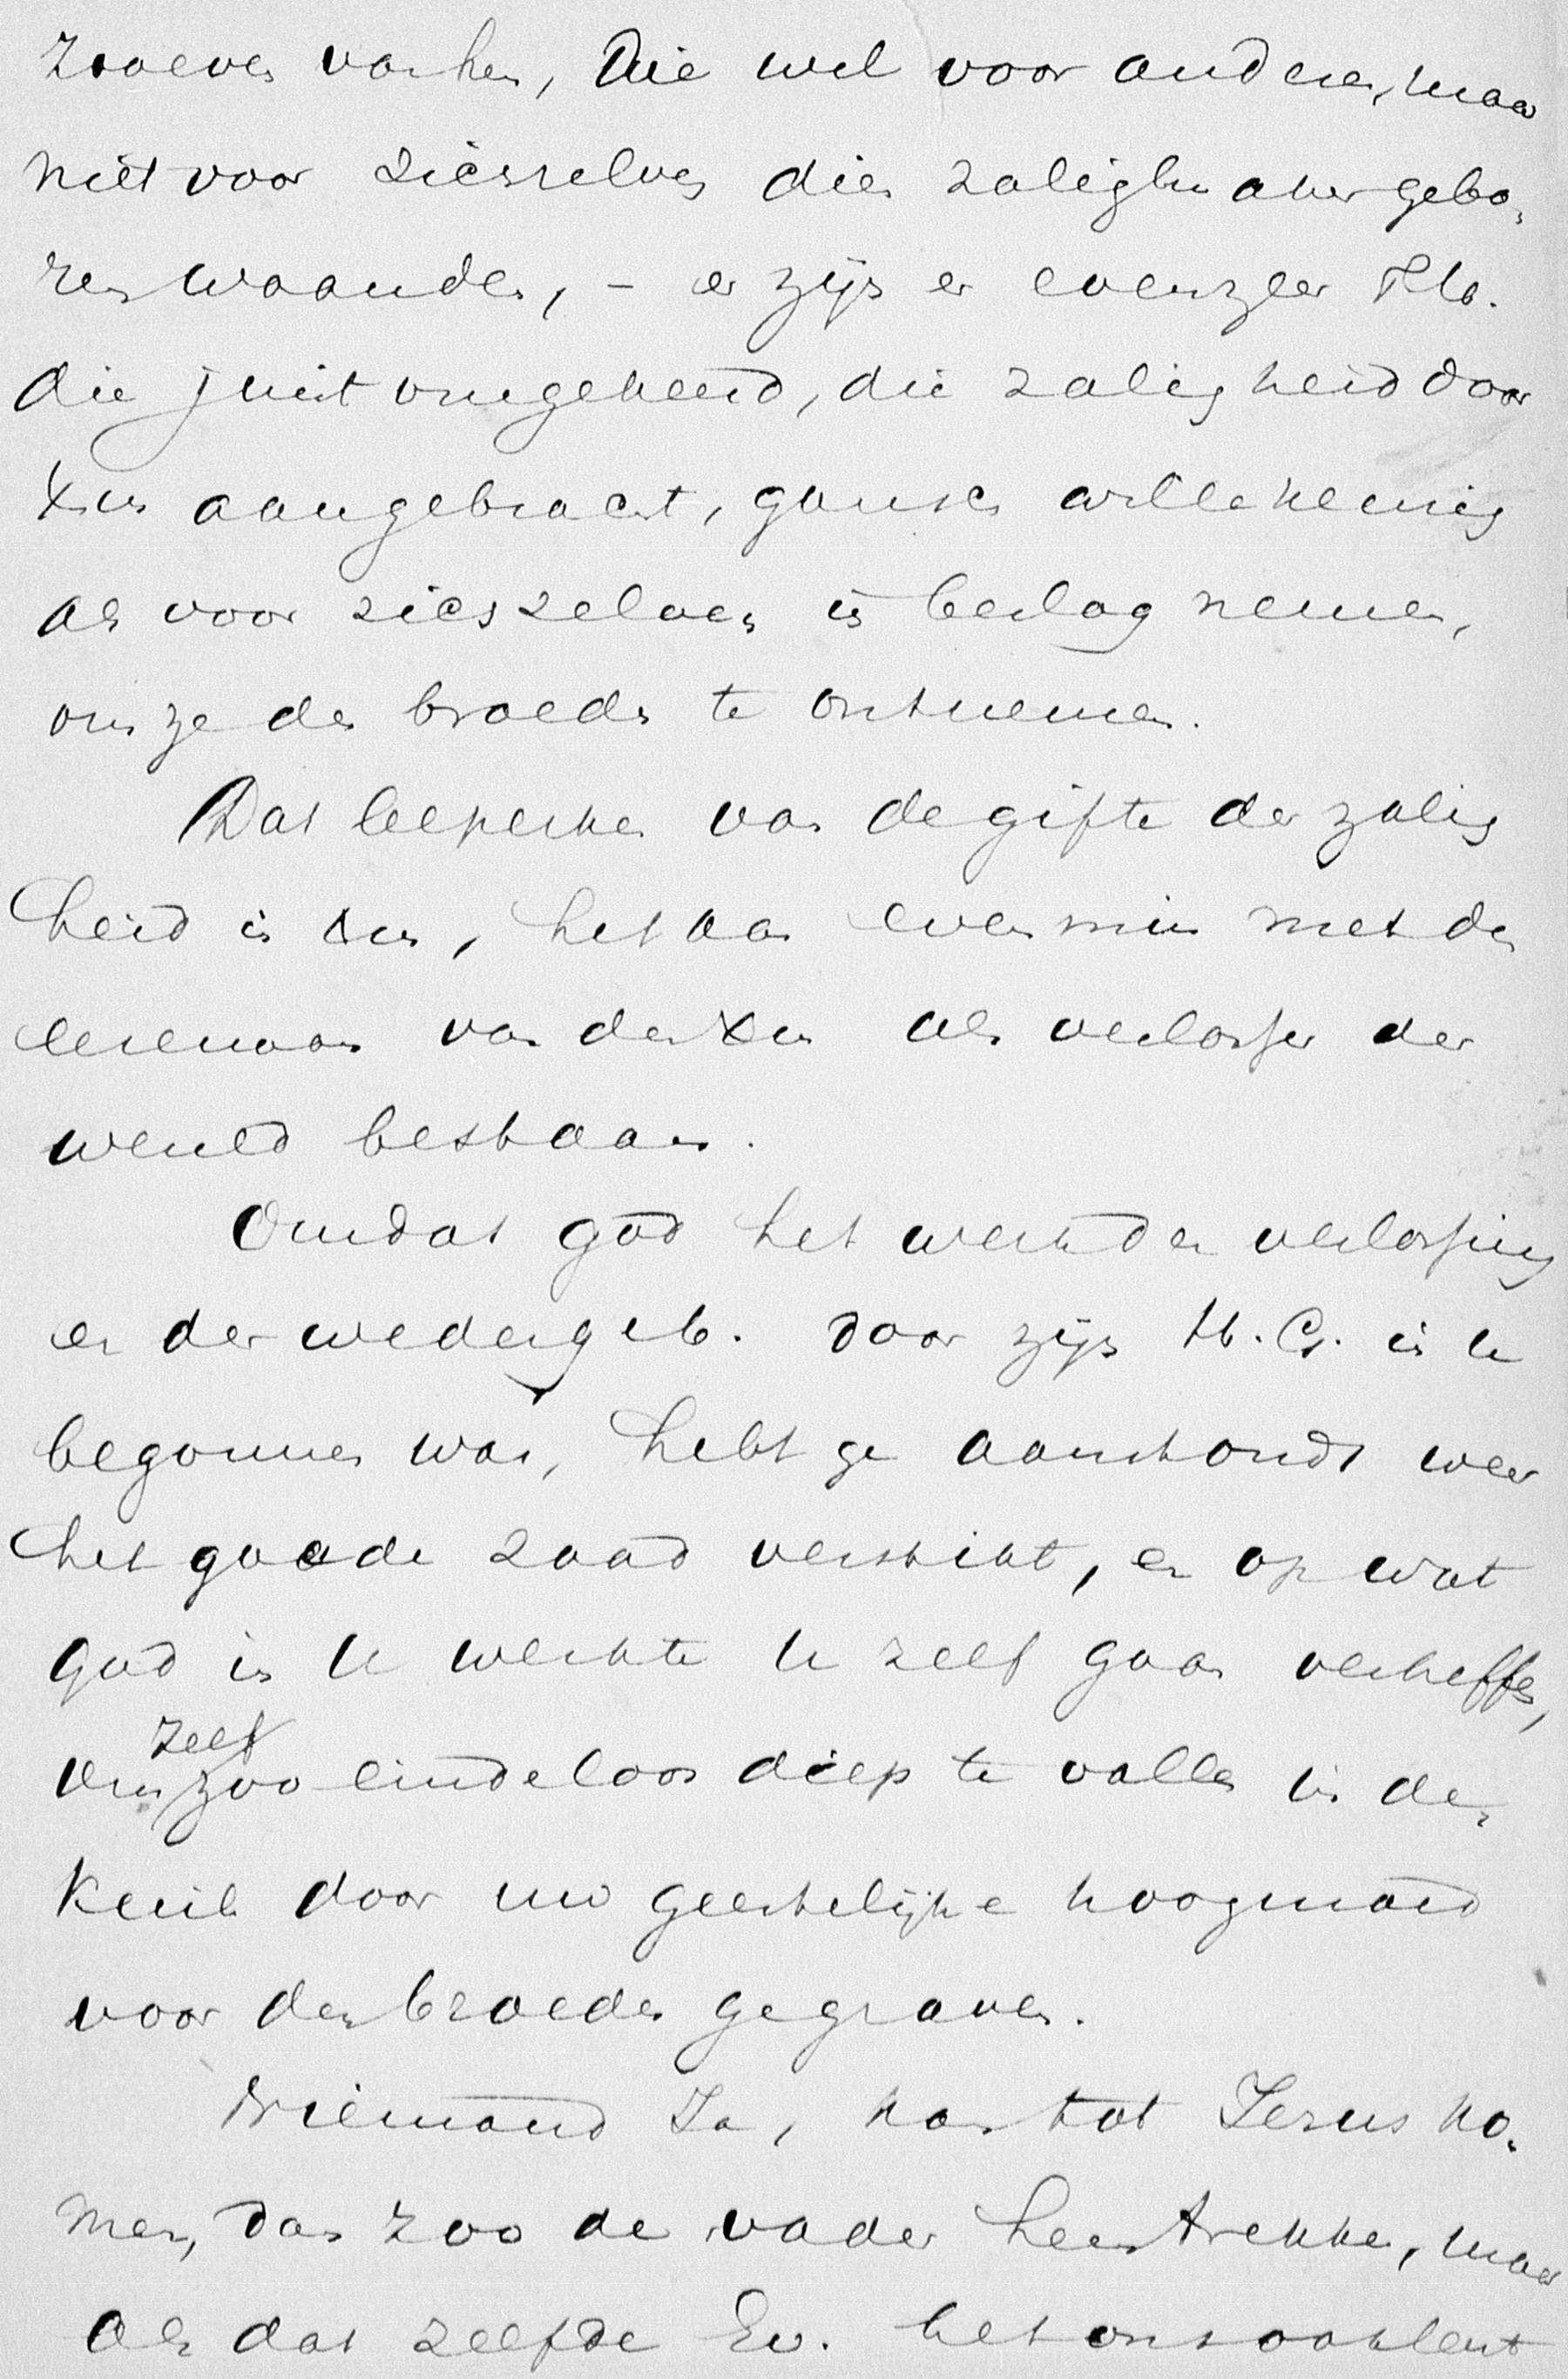 zooeven van hen, die wel voor anderen, maar
niet voor zichzelven dien zaligmaker gebo-
ren waanden, – er zijn er evenzeer
die juist omgekeerd, die zaligheid door
Xus aangebracht, gansch willekeurig
als voor zichzelven in beslag nemen,
om ze den broeder te ontnemen.
Dat beperken van de gifte der zalig
heid in Xus, het kan evenmin met den
eerenaam van den Xus als verlosser der
wereld bestaan.
Omdat God het werk der verlossing
en der wedergeb. door zijn H. G. in u
begonnen was, hebt ge aanstonds weer
het goede zaad verstikt, en op wat
God in u werkte u zelf gaan verheffen,
om zelf zoo eindeloos diep te vallen in den
kuil door uw geestelijke hoogmoed
voor den broeder gegraven.
Niemand Ja, kan tot Jezus ko-
men, dan zoo de vader hem trekke, maar
als dat zelfde Ev. het ons ook leert